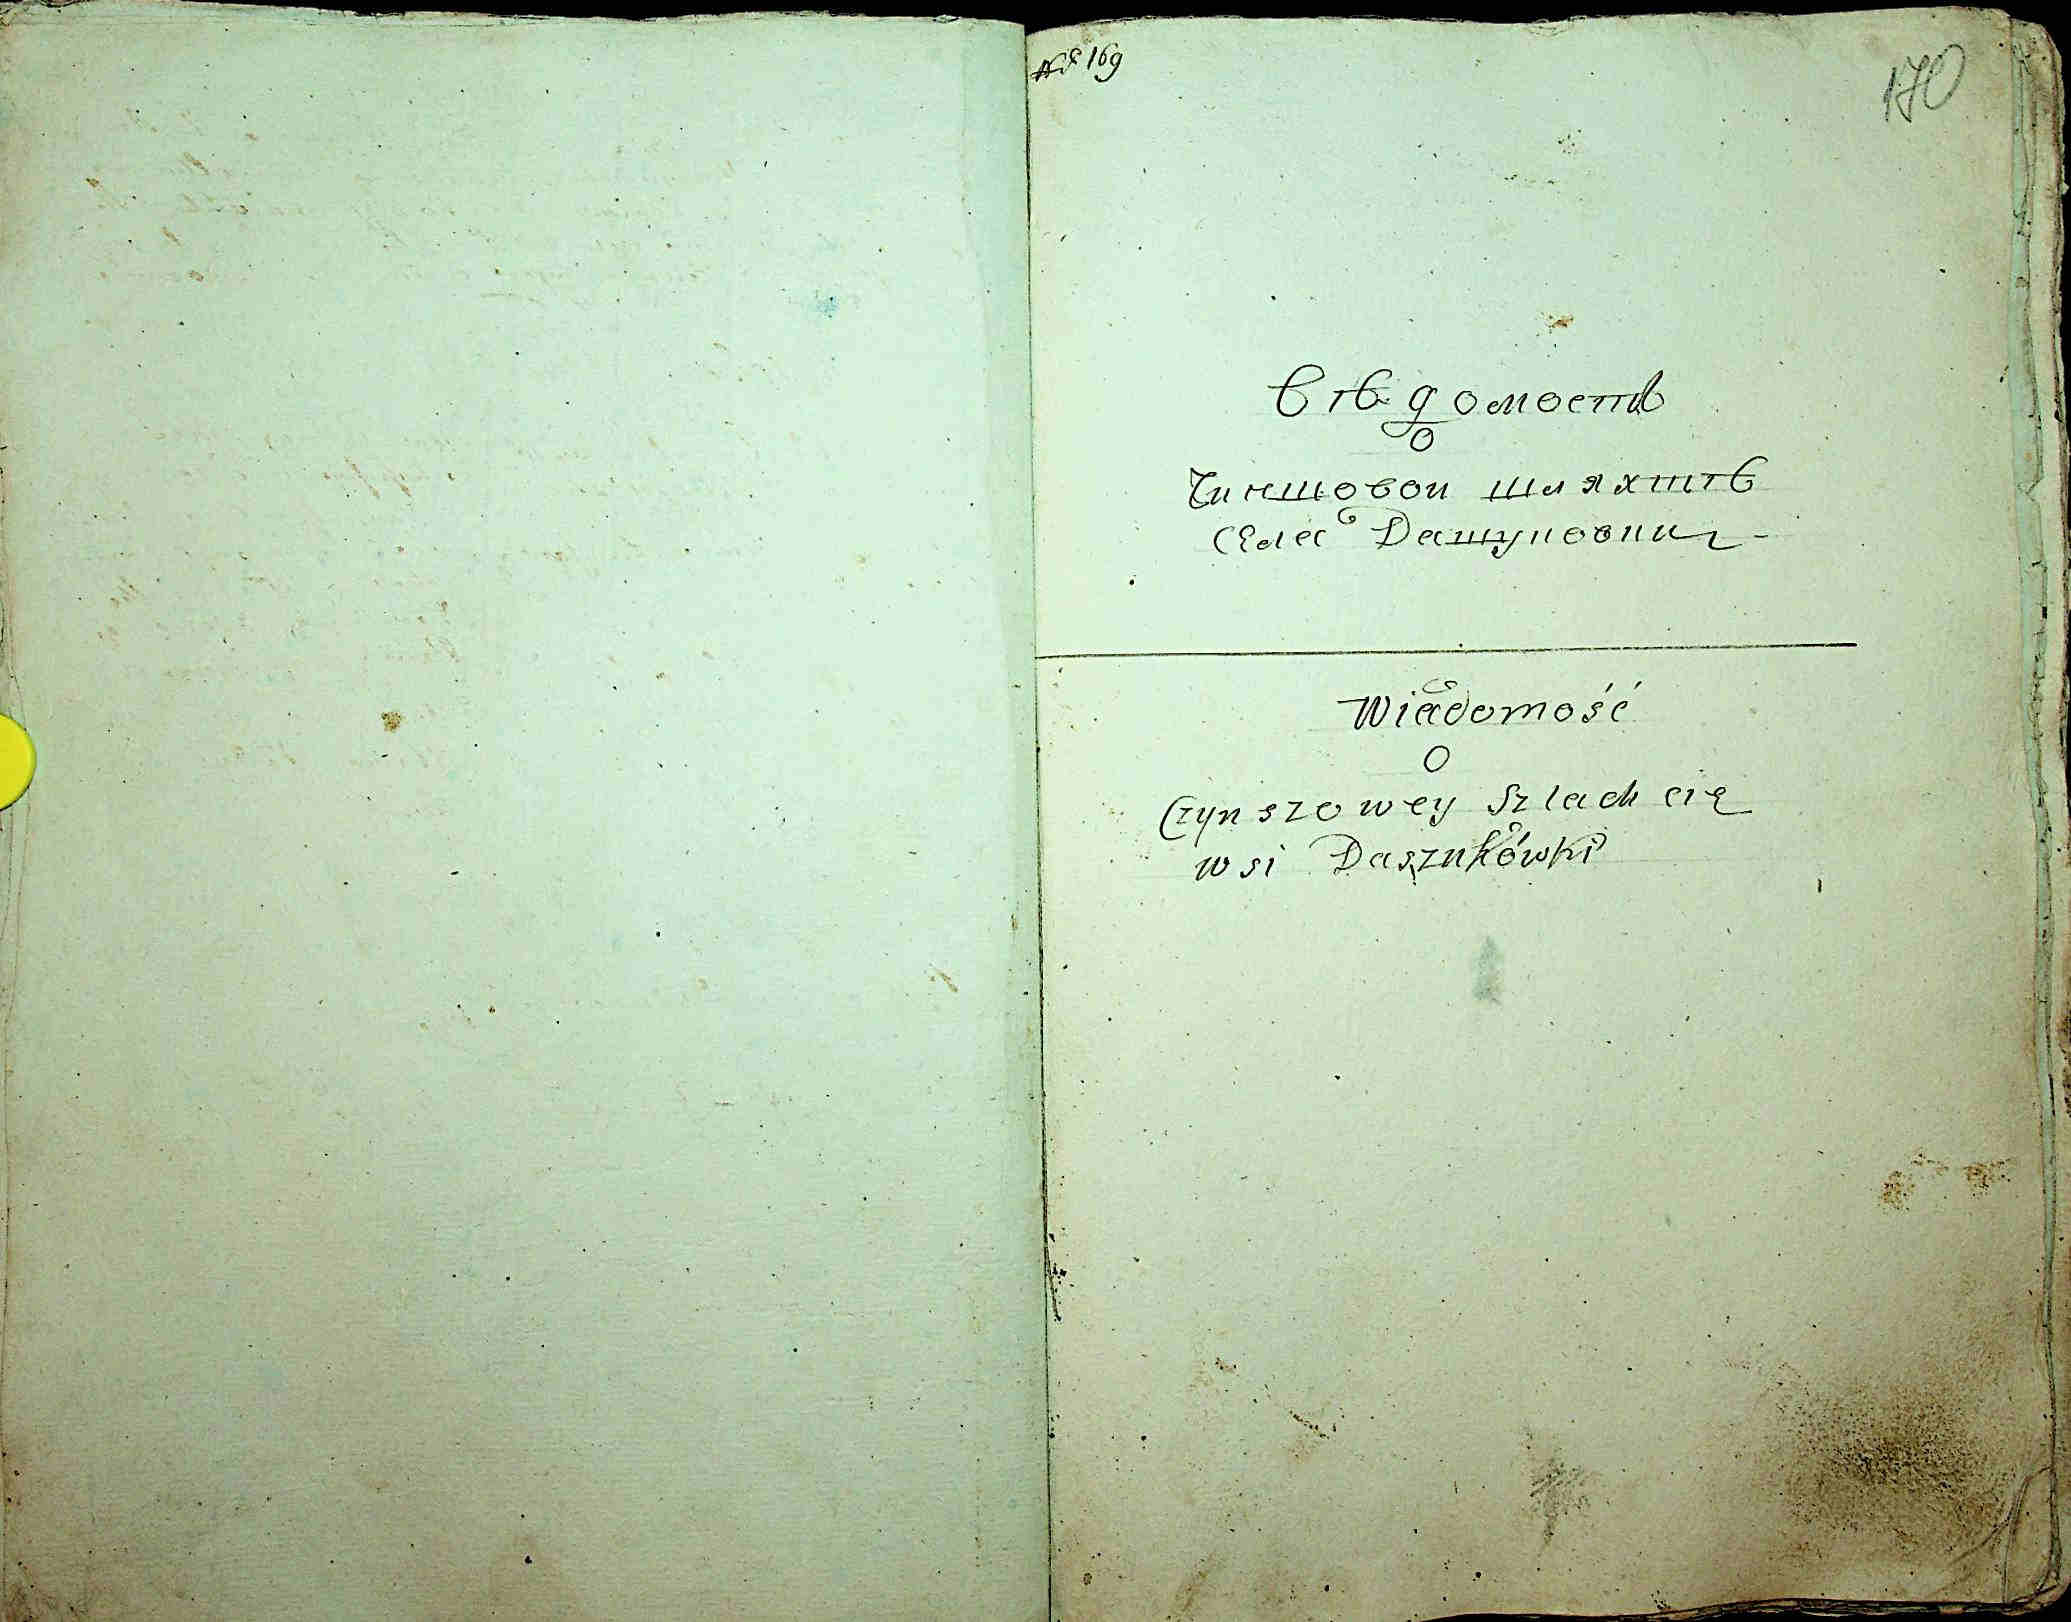 № 169
170
Вѣдомость
О
Чиншовои шляхтѣ
Села Дашуковки
Wiadomość
O
Czynszowey Szlachcie
wsi Daszukówki